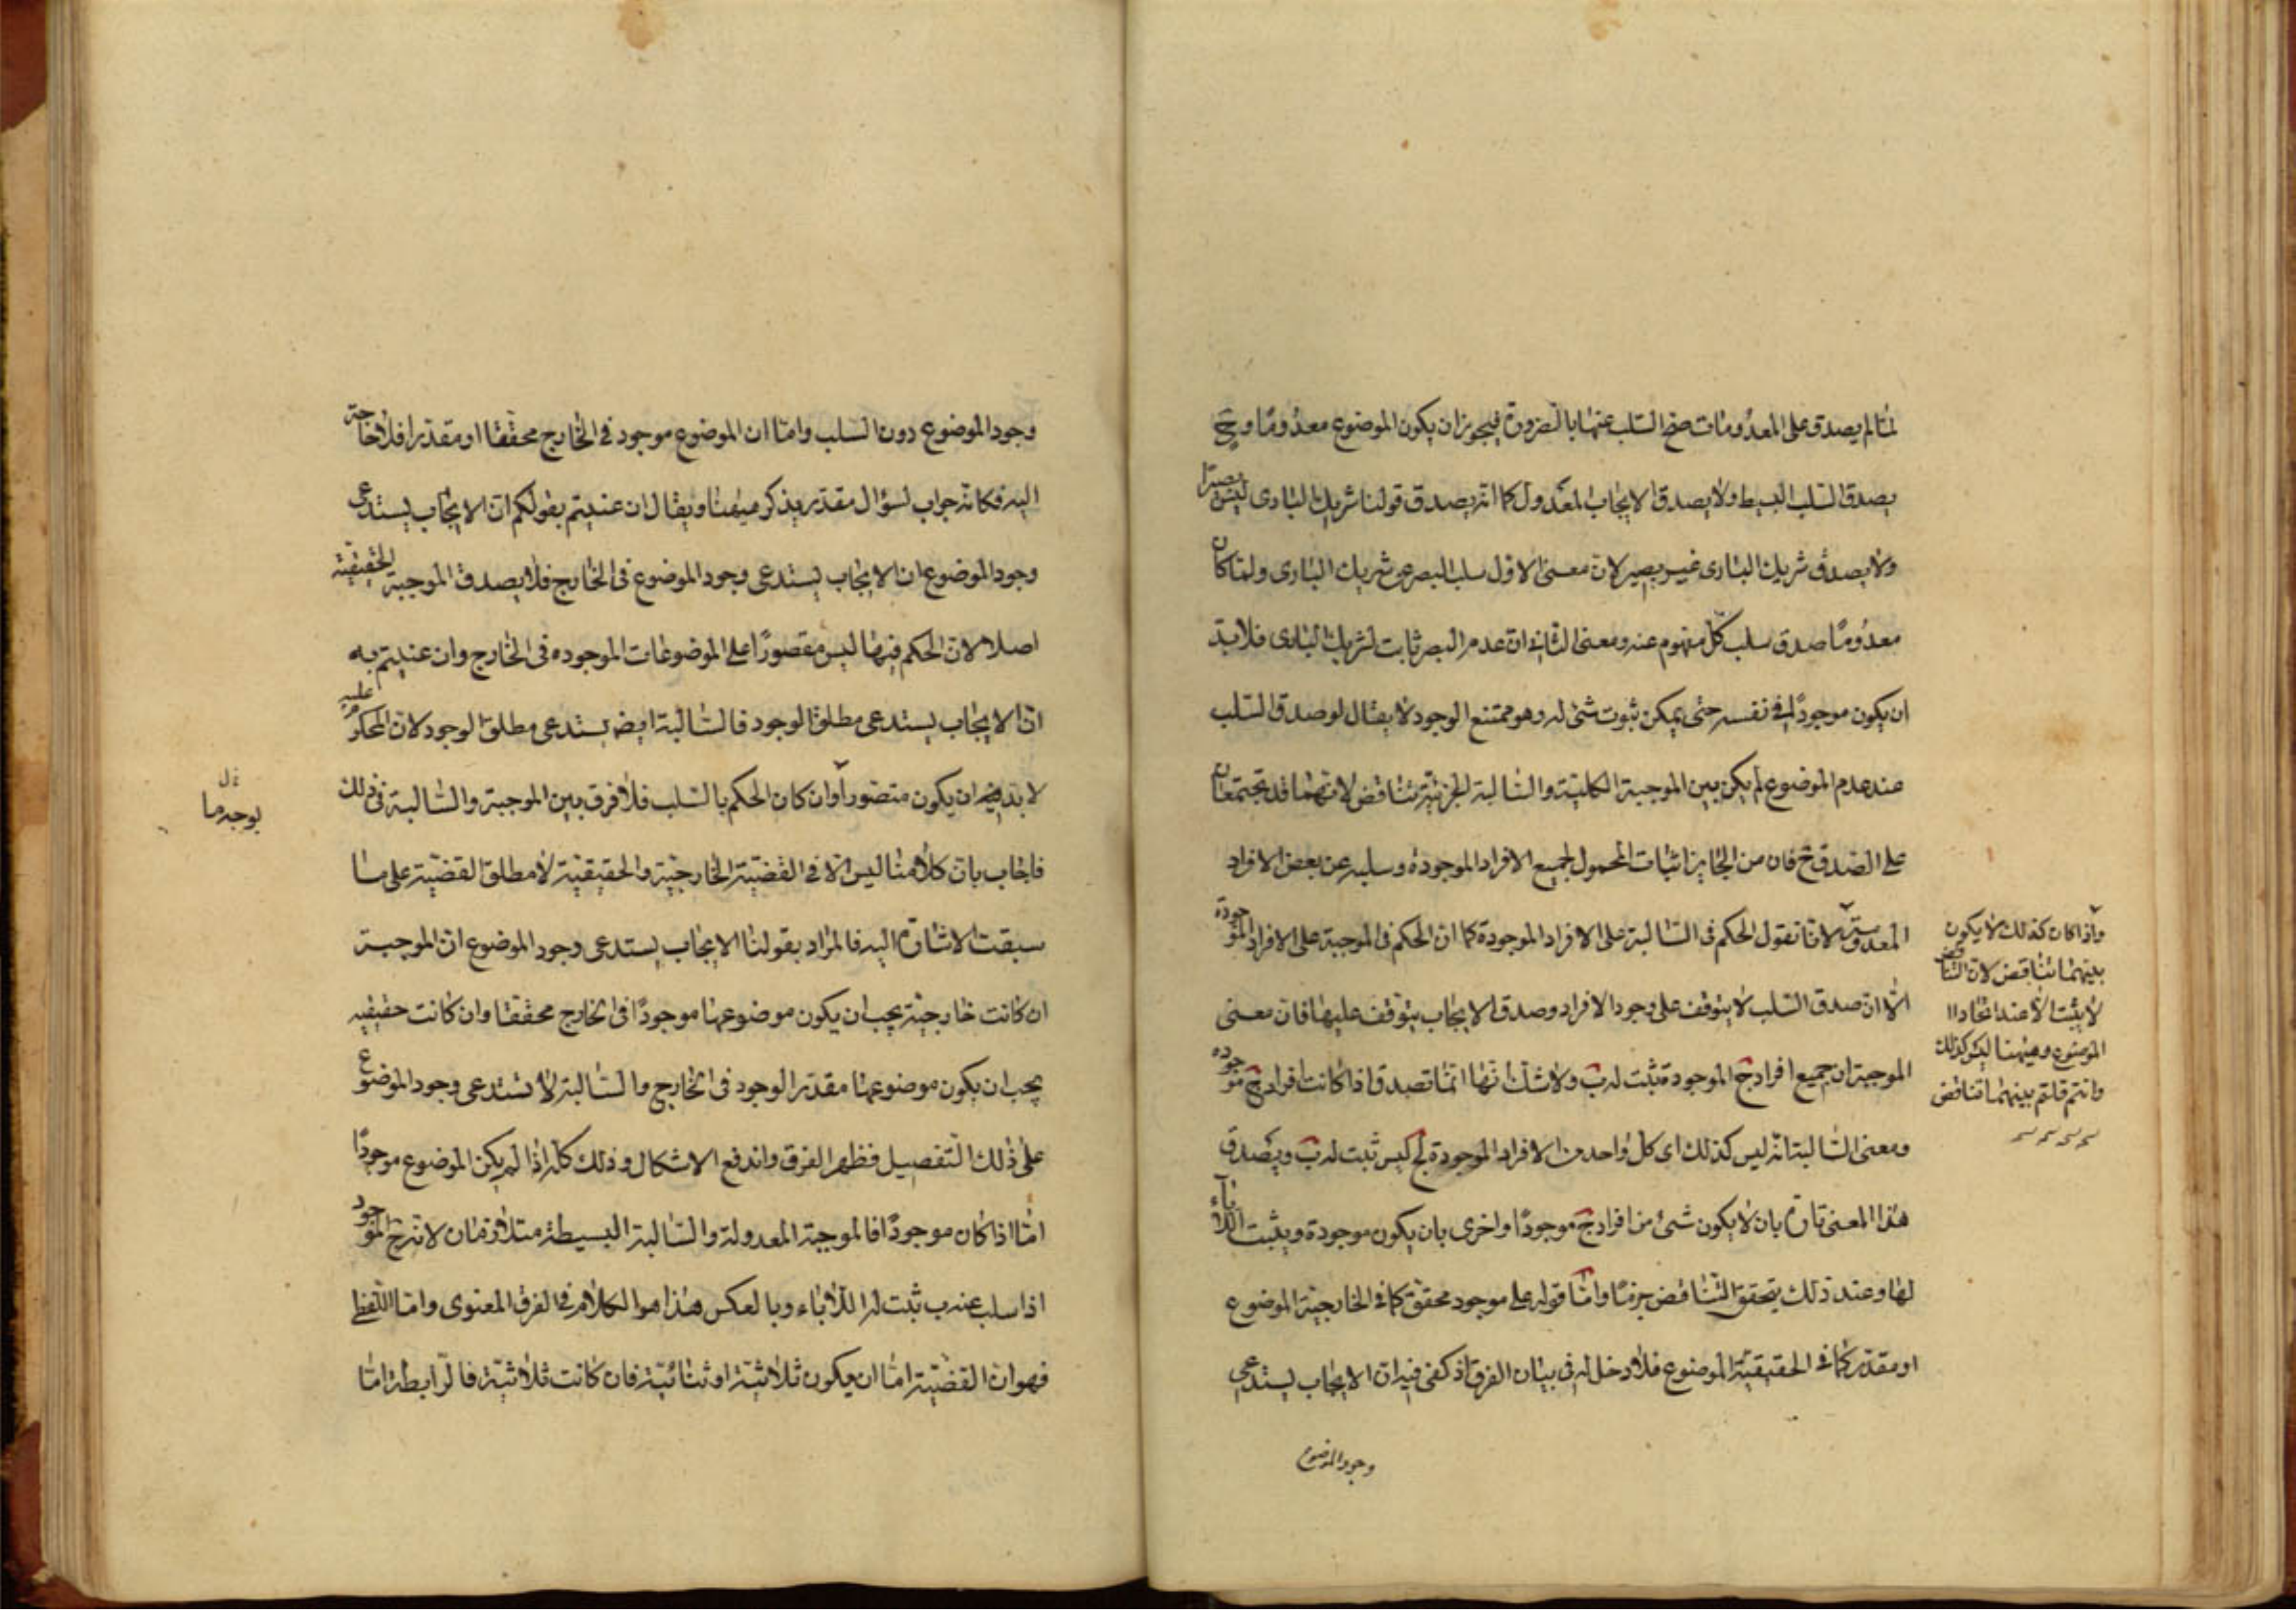 لما لم يصدق على المعدومات صح السلب عنها بالضرورة فيجوز ان يكون الموضوع معدوما وح
يصدق السلب البسيط ولا يصدق الايجاب المعدول كما انه يصدق قولنا شريك البارى ليس بصيرا
ولا يصدق شريك البارى غير بصير لان معنى الاول سلب البصر عن شريك البارى ولما كان
معدوما صدق سلب كل مفهوم عنه ومعنى الثانى ان عدم البصر ثابت لشريك البارى فلا بد
ان يكون موجودا فى نفسه حتى يمكن ثبوت شئ له وهو ممتنع الوجود لا يقال لو صدق السلب
عند عدم الموضوع لم يكن بين الموجبة الكلية والسالبة الجزئية تناقض لانهما قد تجتمعان
على الصدق ح فان من الجايز اثبات المحمول لجميع الافراد الموجودة وسلبه عن بعض الافراد
المعدومة لانا نقول الحكم فى السالبة على الافراد الموجودة كما ان الحكم فى الموجبة على الافراد الموجودة
الا ان صدق السلب لا يتوقف على وجود الافراد وصدق الايجاب يتوقف عليها فان معنى
الموجبة ان جميع افراد ج الموجودة يثبت له ب ولا شك انها انما تصدق اذا كانت افراد ج موجوده
ومعنى السالبة انه ليس كذلك اى كل واحد من الافراد الموجودة لج ليس ثبت له ب ويصدق
هذا المعنى تارة بان لا يكون شئ من افراد ج موجودا واخرى بان يكون موجودة ويثبت اللاباء
لها وعند ذلك يتحقق التناقض جزما واما قوله على موجود محقق كما فى الخارجية الموضوع
او مقدر كما فى الحقيقية الموضوع فلا دخل له فى بيان الفرق اذ كفى فيه ان الايجاب يستدعى
وجود الموضوع
واذا كان كذلك لا يكون
بينهما تناقض لان التناقض
لا يثبت الا عند اتحاد ا
الموضوع وههنا ليس كذلك
وانتم قلتم بينهما تناقض
وجود الموضوع دون السلب واما ان الموضوع موجود فى الخارج محققا او مقدرا فلا حاجة
اليه فكانه جواب لسؤال مقدر يذكر هيهنا ويقال ان عنيتم بقولكم ان الايجاب يستدعى
وجود الموضوع ان الايجاب يستدعى وجود الموضوع فى الخارج فلا يصدق الموجبة الحقيقية
اصلا لان الحكم فيها ليس مقصورا على الموضوعات الموجوده فى الخارج وان عنيتم به
ان الايجاب يستدعى مطلق الوجود فالسالبة ايضه يستدعى مطلق الوجود لان المحكوم عليه
لا بد فيه ان يكون متصورا وان كان الحكم بالسلب فلا فرق بين الموجبة والسالبة فى ذلك
فاجاب بان كلامنا ليس الا فى القضية الخارجية والحقيقية لا مطلق القضية على ما
سبقت الاشارة اليه فالمراد بقولنا الايجاب يستدعى وجود الموضوع ان الموجبة
ان كانت خارجية يجب ان يكون موضوعها موجودا فى الخارج محققا وان كانت حقيقيه
يجب ان يكون موضوعها مقدر الوجود فى الخارج والسالبة لا تستدعى وجود الموضوع
على ذلك التفصيل فظهر الفرق واندفع الاشكال وذلك كله اذا لم يكن الموضوع موجودا
اما اذا كان موجودا فالموجبة المعدولة والسالبة البسيطة متلازمان لان ج الموجود
اذا سلب عنه ب ثبت له اللاباء وبالعكس هذا هو الكلام فى الفرق المعنوى واما اللفظ
فهو ان القضية اما ان يكون ثلاثية او ثنائية فان كانت ثلاثية فالرابطة اما
بوجه ما